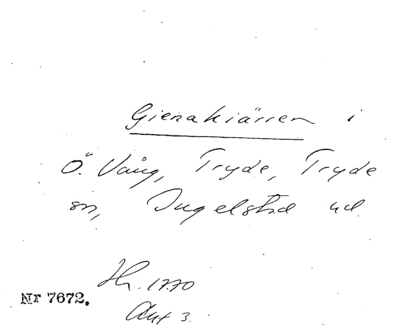 Gienakiärren i
Ö. Vång, Tryde, Tryde
sn, Ingelstad hd.
Hr. 1770
Akt 3.
Nr 7672.